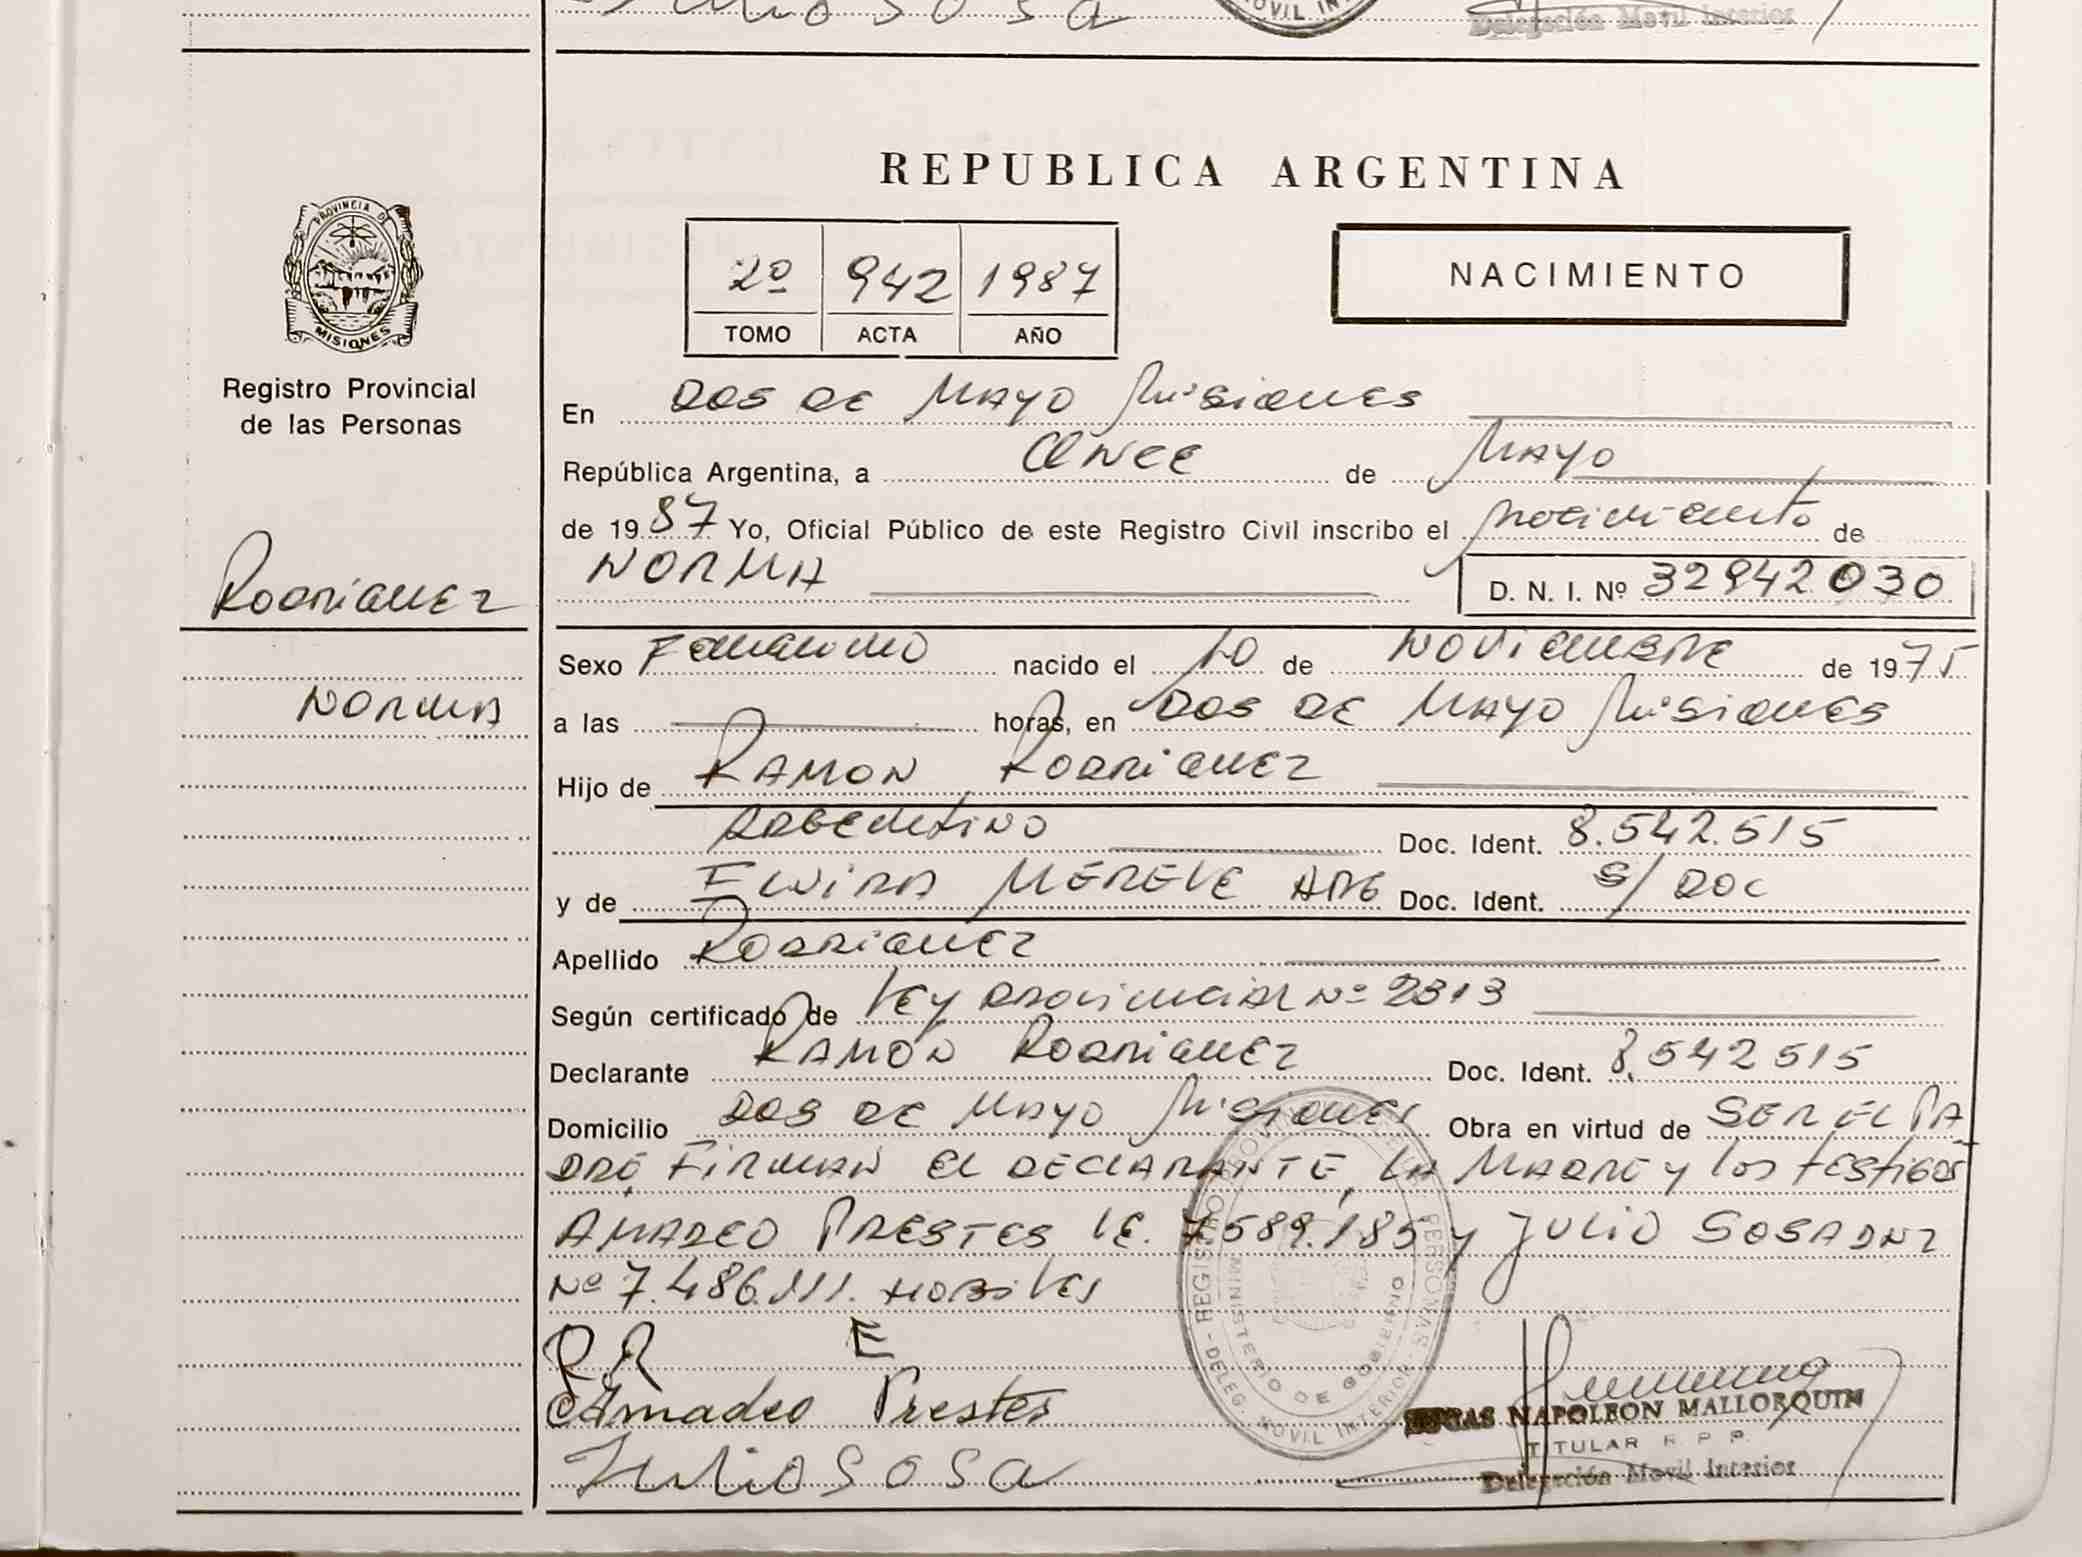 Julio Sosa
MOVIL IN
Delegación Movil Interior
REPUBLICA ARGENTINA
PROVINCIA DE
MISIONES
2º 942 1987
TOMO ACTA AÑO
NACIMIENTO
Registro Provincial
de las Personas
En DOS DE MAYO Misiones
República Argentina, a ONCE de MAYO
de 1987 Yo, Oficial Público de este Registro Civil inscribo el nacimiento de
NORMA D. N. I. Nº 32942030
RODRIGUEZ
NORMA
Sexo Femenino nacido el 10 de NOVIEMBRE de 1975
a las horas, en DOS DE MAYO Misiones
Hijo de RAMON RODRIGUEZ
ARGENTINO Doc. Ident. 8.542.515
y de ELVIRA MERELE ARG Doc. Ident. S/DOC
Apellido RODRIGUEZ
Según certificado de LEY PROVINCIAL Nº 2313
Declarante RAMON RODRIGUEZ Doc. Ident. 8.542515
Domicilio DOS DE MAYO Misiones Obra en virtud de SER EL PA
DRE FIRMAN EL DECLARANTE, LA MADRE y los testigos
AMADEO PRESTES LE. 7589.185 y JULIO SOSA DNI
Nº 7.486.111. HABILES
R R E
Amadeo Prestes
Julio Sosa
REGISTRO PROVINCIAL DE LAS PERSONAS - DELEG. MOVIL INTERIOR -
MINISTERIO DE GOBIERNO
NAPOLEON MALLORQUIN
TITULAR R. P. P.
Delegación Movil Interior